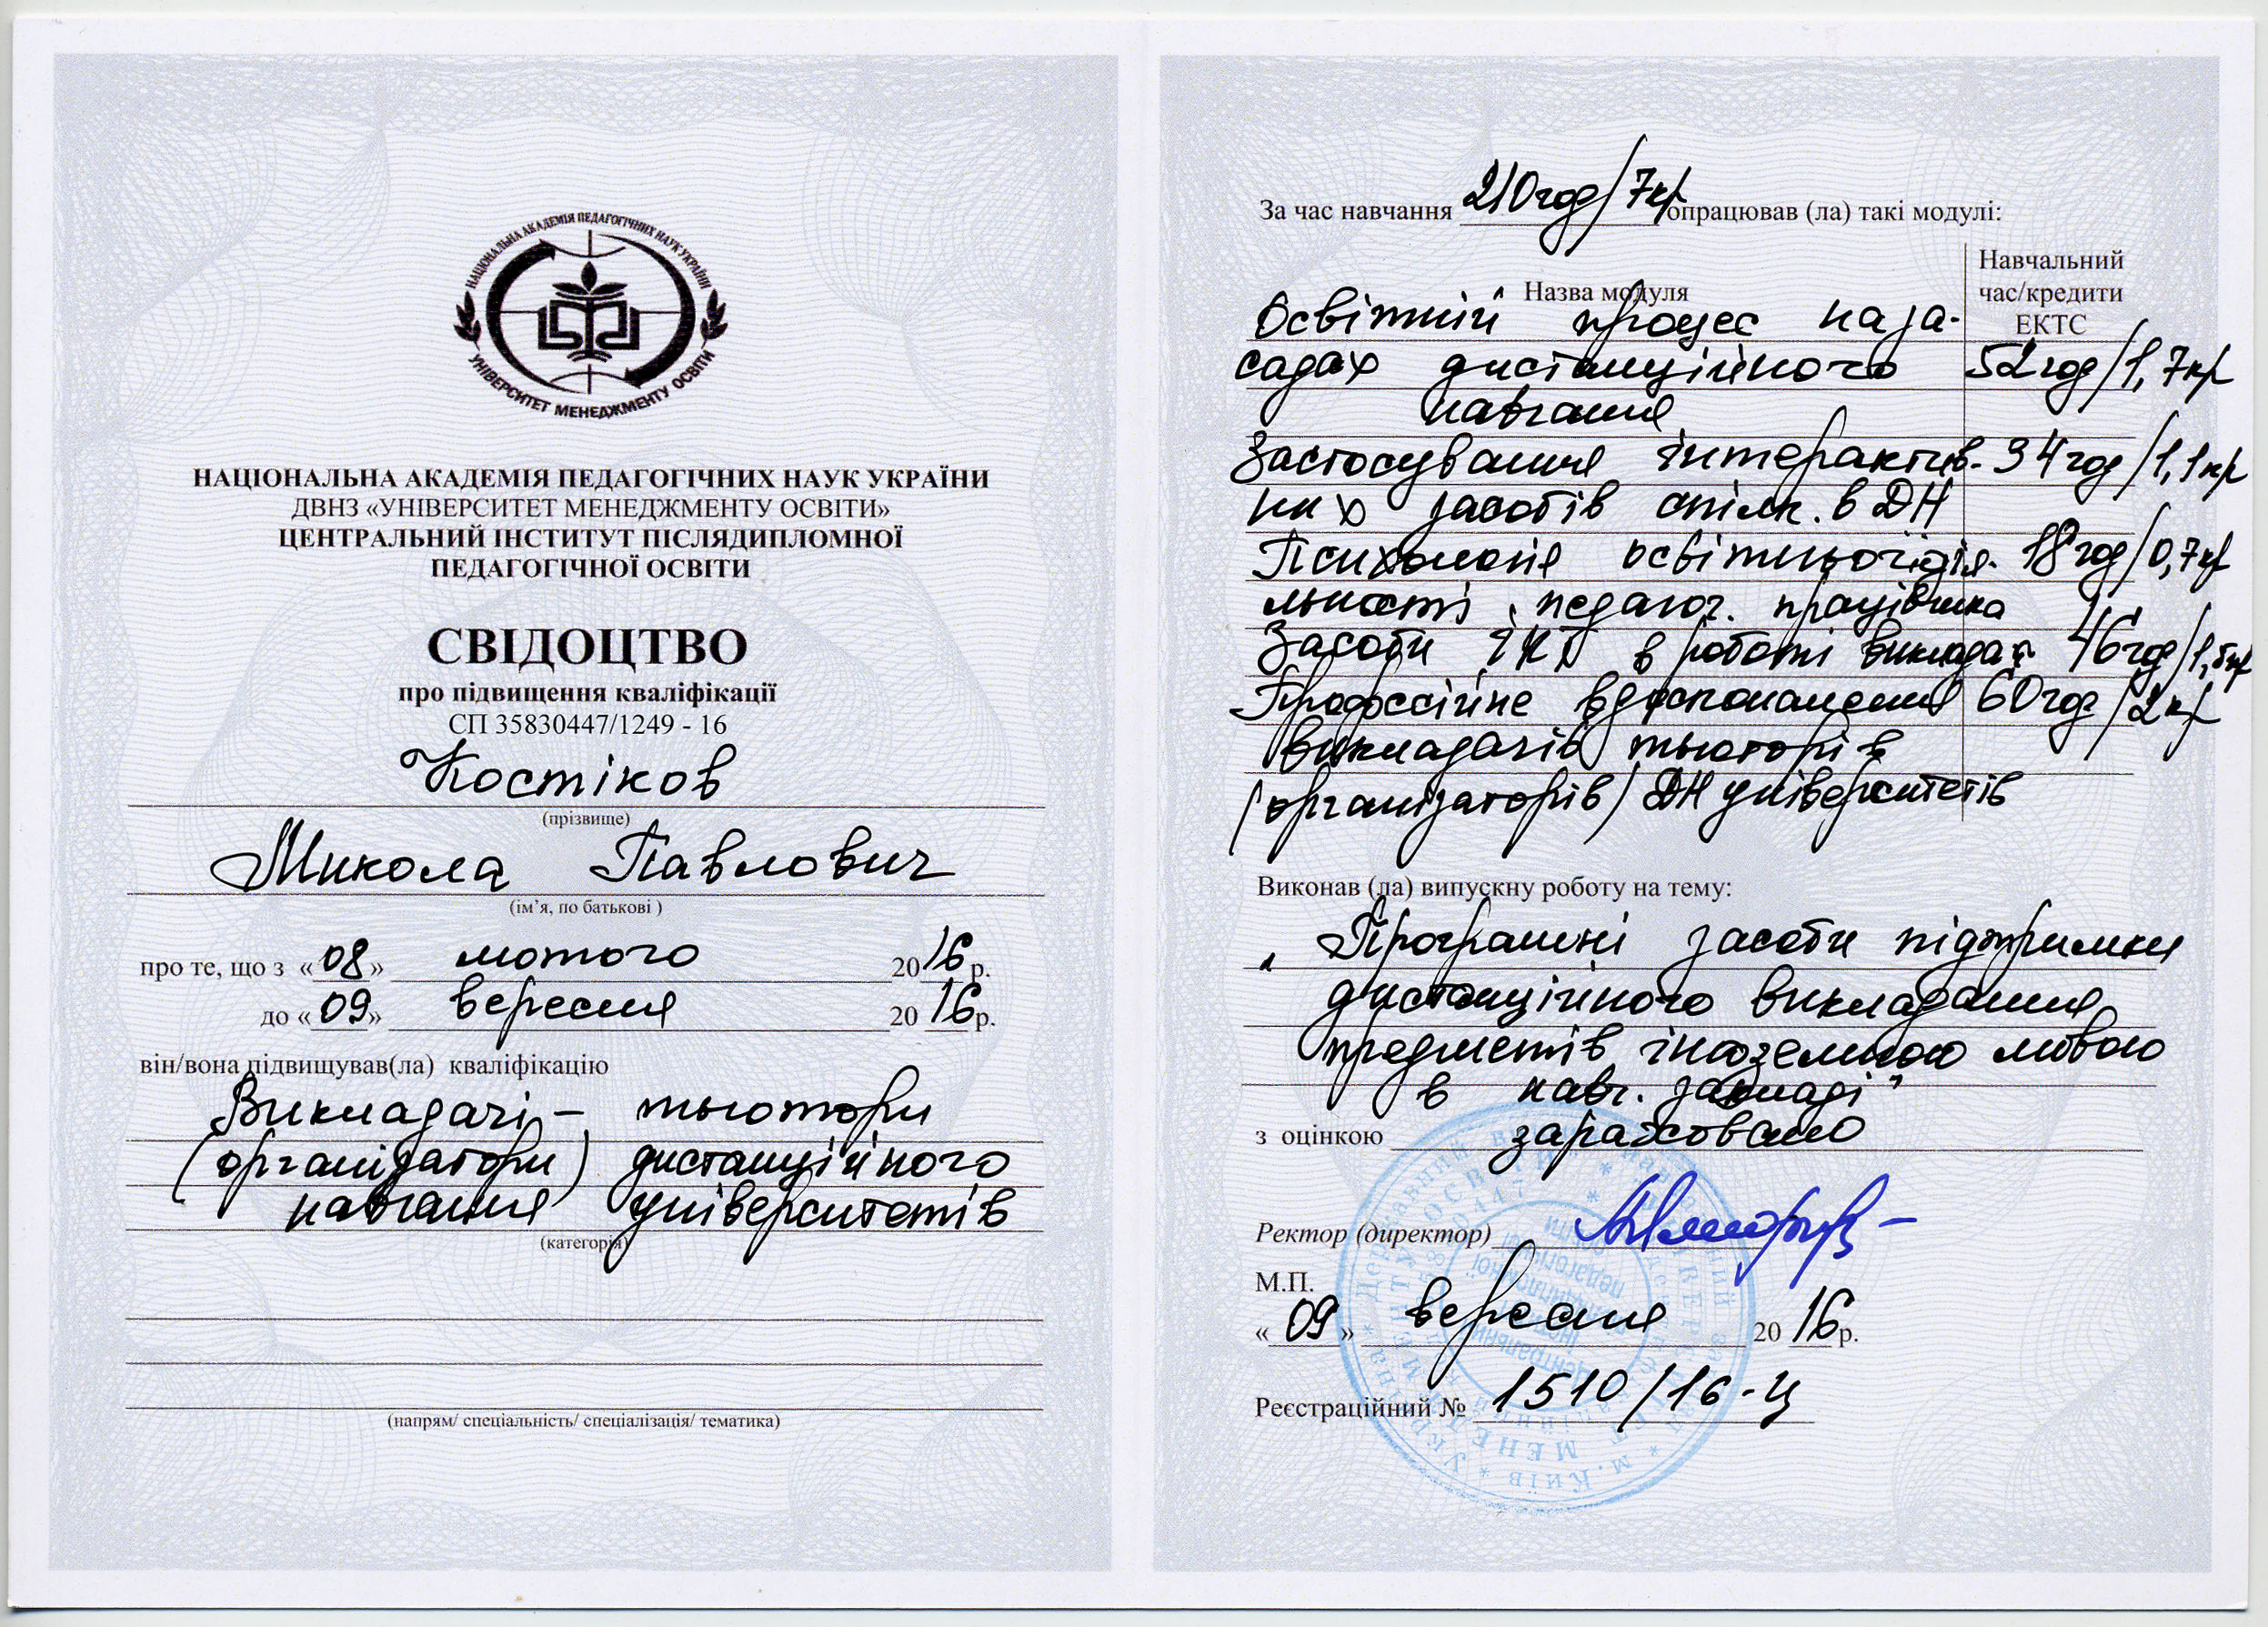 НАЦІОНАЛЬНА АКАДЕМІЯ ПЕДАГОГІЧНИХ НАУК УКРАЇНИ
УНІВЕРСИТЕТ МЕНЕДЖМЕНТУ ОСВІТИ
НАЦІОНАЛЬНА АКАДЕМІЯ ПЕДАГОГІЧНИХ НАУК УКРАЇНИ
ДВНЗ «УНІВЕРСИТЕТ МЕНЕДЖМЕНТУ ОСВІТИ»
ЦЕНТРАЛЬНИЙ ІНСТИТУТ ПІСЛЯДИПЛОМНОЇ
ПЕДАГОГІЧНОЇ ОСВІТИ
СВІДОЦТВО
про підвищення кваліфікації
СП 35830447/1249 - 16
Костіков
(прізвище)
Микола Павлович
(ім’я, по батькові )
про те, що з «08» лютого 2016 р.
до «09» вересня 2016 р.
він/вона підвищував(ла) кваліфікацію
Викладачі – тьютори
(організатори) дистанційного
навчання університетів
(категорія)
(напрям/ спеціальність/ спеціалізація/ тематика)
За час навчання 210 год/7кр опрацював (ла) такі модулі:
Назва модуля
Навчальний
час/кредити
ЕКТС
Освітній процес на за-
садах дистанційного 52 год/1,7кр
навчання
Застосування інтерактив- 34 год/1,1кр
них засобів спілк. в ДН
Психологія освітньої дія- 18 год/0,7кр
льності педагог. працівника
Засоби ІКТ в роботі викладача 46 год/1,5кр
Професійне вдосконалення 60 год/2кр
викладачів тьюторів
(організаторів) ДН університетів
Виконав (ла) випускну роботу на тему:
„Програмні засоби підтримки
дистанційного викладання
предметів іноземною мовою
в навч. закладі”
з оцінкою зараховано
Ректор (директор)
М.П.
«09» вересня 2016 р.
Реєстраційний № 1510/16-Ц